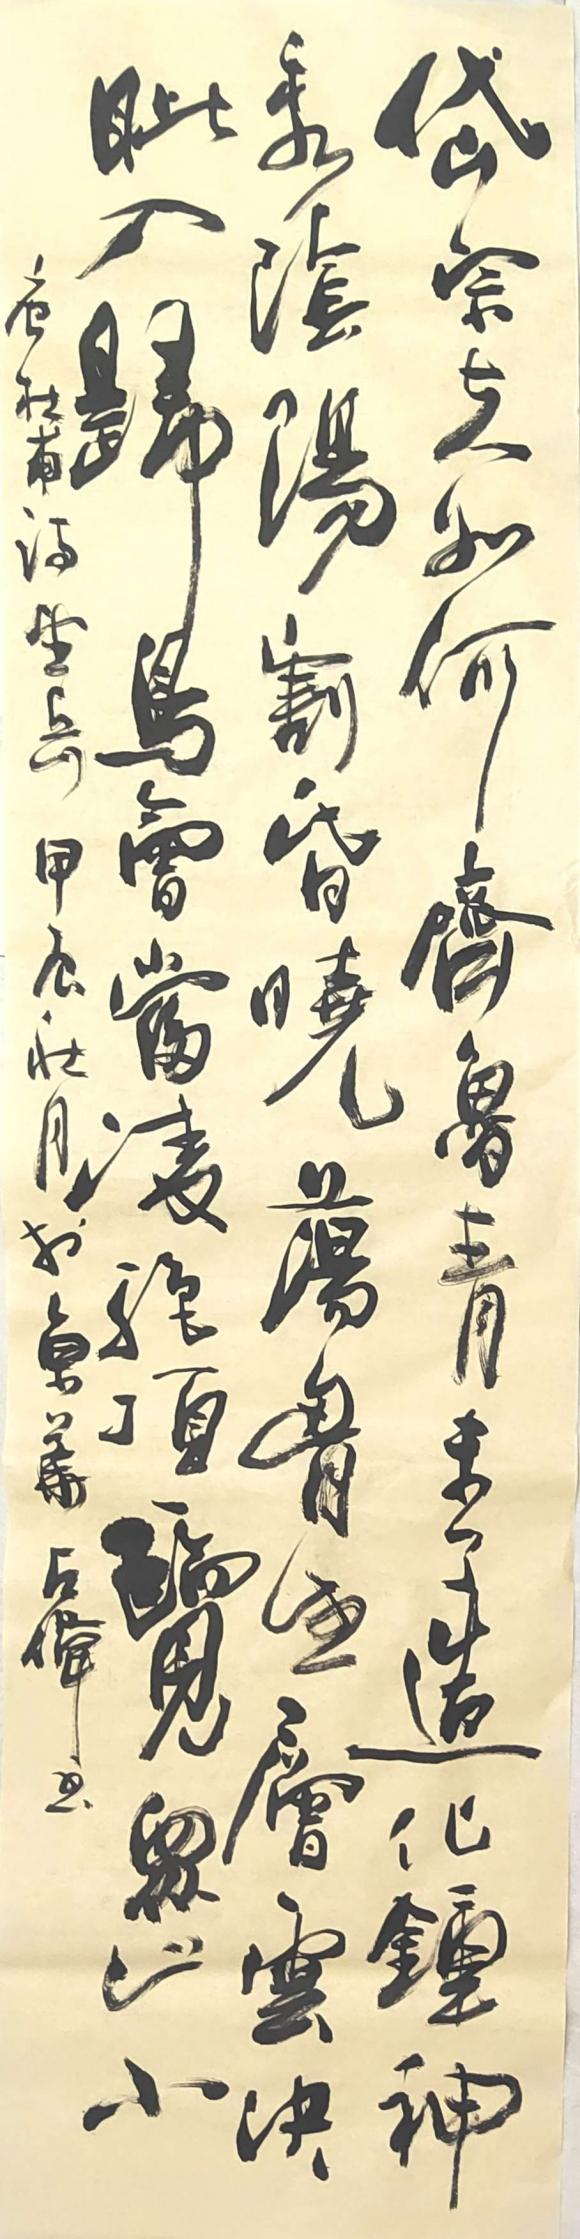 岱宗夫如何齊魯青未了造化鍾神
秀陰陽割昏曉蕩胷生層雲決
眥入歸鳥會當凌絕頂一覽眾山小
唐杜甫詩望岳甲辰壯月於京華占偉書